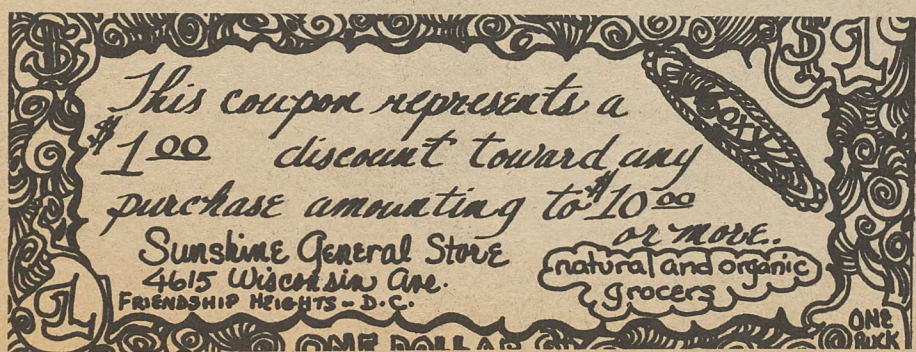 $ $1
This coupon represents a
$1.00 discount toward any
purchase amounting to $10.00
or more.
Sunshine General Store
4615 Wisconsin Ave.
FRIENDSHIP HEIGHTS - D.C.
natural and organic
grocers
1
ONE DOLLAR
ONE
BUCK